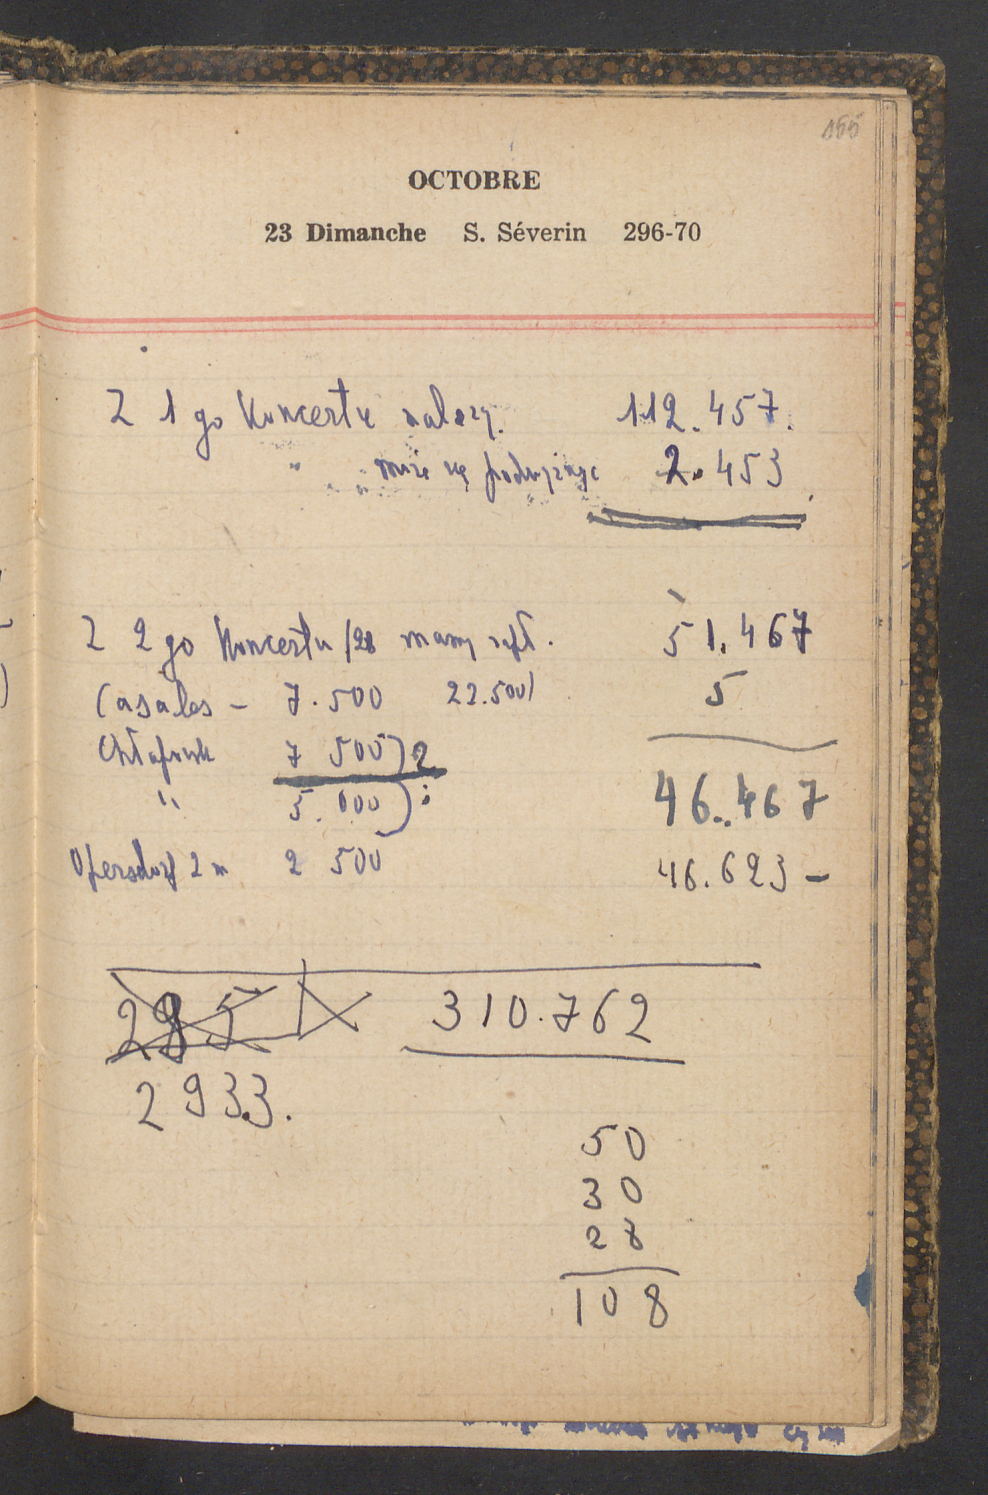 155
OCTOBRE
23 Dimanche S. Séverin 296-70
Z 1 go Koncertu należy. 112.457.
" " może się podwyższyć 2.453
Z 2 go Koncertu /28 mamy 51.467
Casales - 7.500 22.500) 5
7 500) 2
" 5.000) : 46.467
Opersdorf 2 m 2 500 46.623 -
310.762
2933.
50
30
28
108